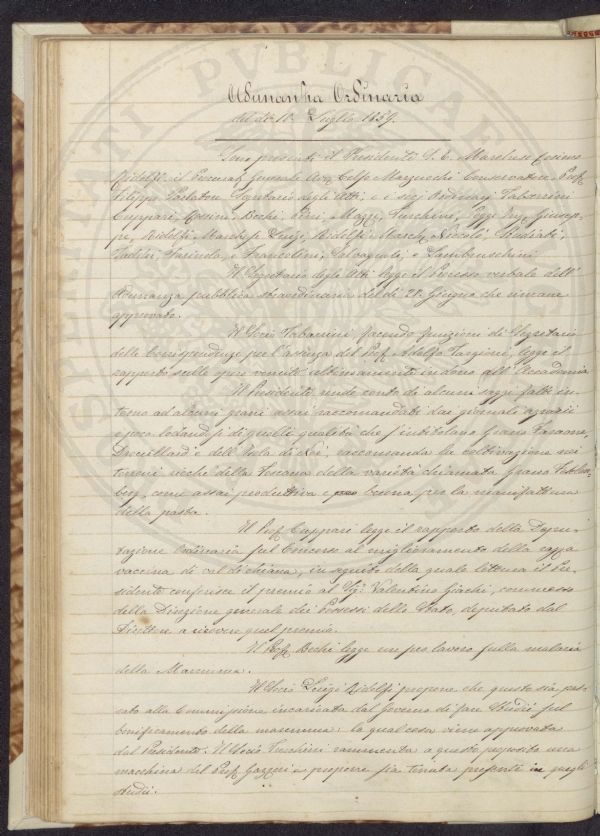 Adunanza Ordinaria
del dì 10 Luglio 1859.
Sono presenti il Presidente S. E. Marchese Cosimo
Ridolfi, il Avv. Celso Marzucchi Conservatore, Prof.
Filippo Segretario degli Atti, e i socj Ordinarj Tabarrini
Cuppari, Bechi, Neri, Mazzi, Turchini, Poggi Ing. Giusep-
pe, Ridolfi March. Luigi, Ridolfi March. Niccolò, Studiati,
e Francolini, Salvagnoli, e Lambruschini.
Il Segretario degli Atti legge il Processo verbale dell'
Adunanza pubblica straordinaria del dì 27. Giugno che rimane
approvato.
Il Socio Tabarrini facendo funzioni di Segretario
delle Corrispondenze per l'assenza del Prof. Adolfo Targioni, legge il
rapporto sulle opere venute ultimamente in dono all'Accademia
Il Presidente rende conto di alcuni saggi fatti in-
torno ad alcuni grani assai raccomandati dai giornali agrarii
e poco lodandosi di quelli qualità che s'intitolano Grano
Drouillard e dell'Isola di Noè, raccomanda la coltivazione nei
terreni ricchi della Toscana della varietà chiamata Grano
come assai produttiva e buona per la manifattura
della pasta.
Il Prof. Cuppari legge il rapporto della Depu-
tazione Ordinaria sul Concorso al miglioramento della razza
vaccina di val di chiana, in seguito della quale lettura il Pre-
sidente conferisce il premio al Sig. Valentino Giachi, commesso
della Direzione generale dei Possessi dello Stato, deputato dal
Direttore a ricevere quel premio.
Il Prof. Bechi legge un suo lavoro sulla malaria
della Maremma.
Il Socio Luigi Ridolfi propone che questo sia pas-
sato alla Commissione incaricata dal Governo di fare studii sul
bonificamento della maremma: la qual cosa viene approvata
dal Presidente. Il Socio Turchini rammenta a questo proposito una
macchina del Prof. Gazzeri e propone sia tenuta presente in quegli
studii.